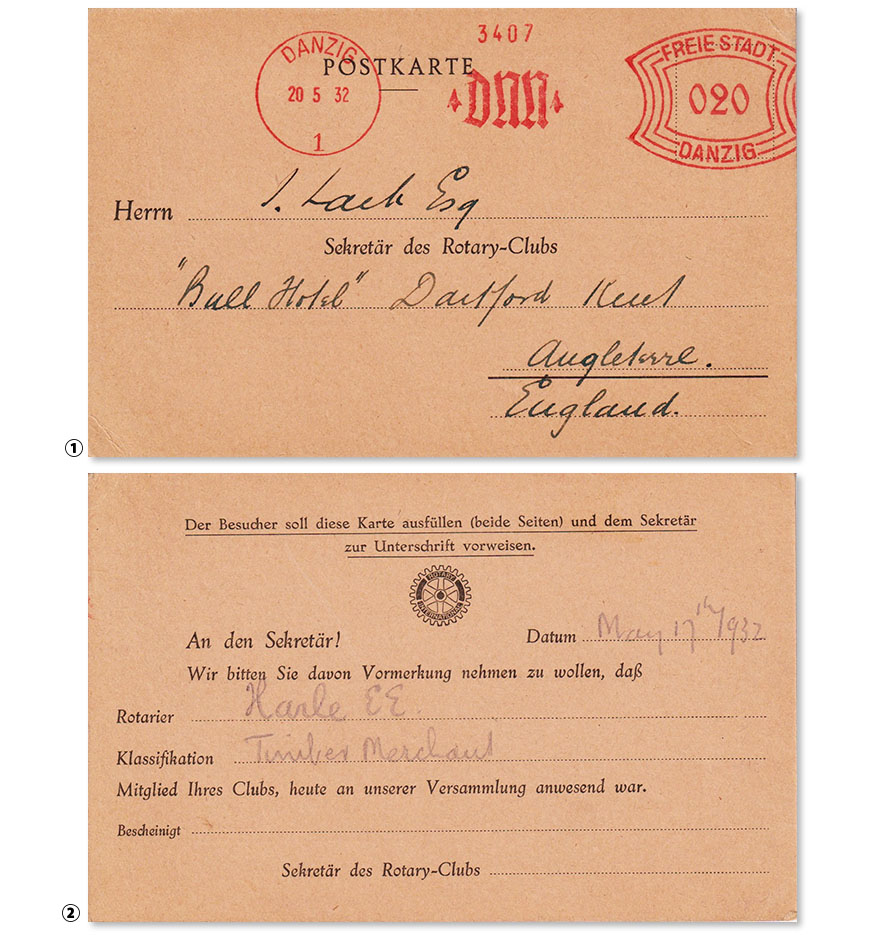 3407
DANZIG
POSTKARTE
20 5 32
DNN
1
FREIE STADT
020
DANZIG
Herrn Esq
Sekretär des Rotary-Clubs
"Bull Hotel" Dartford Kent
Angleterre.
England.
①
Der Besucher soll diese Karte ausfüllen (beide Seiten) und dem Sekretär
zur Unterschrift vorweisen.
ROTARY
INTERNATIONAL
An den Sekretär! Datum May 17th/1932
Wir bitten Sie davon Vormerkung nehmen zu wollen, daß
Rotarier Harle EE.
Klassifikation Timber Merchant
Mitglied Ihres Clubs, heute an unserer Versammlung anwesend war.
Bescheinigt
Sekretär des Rotary-Clubs
②